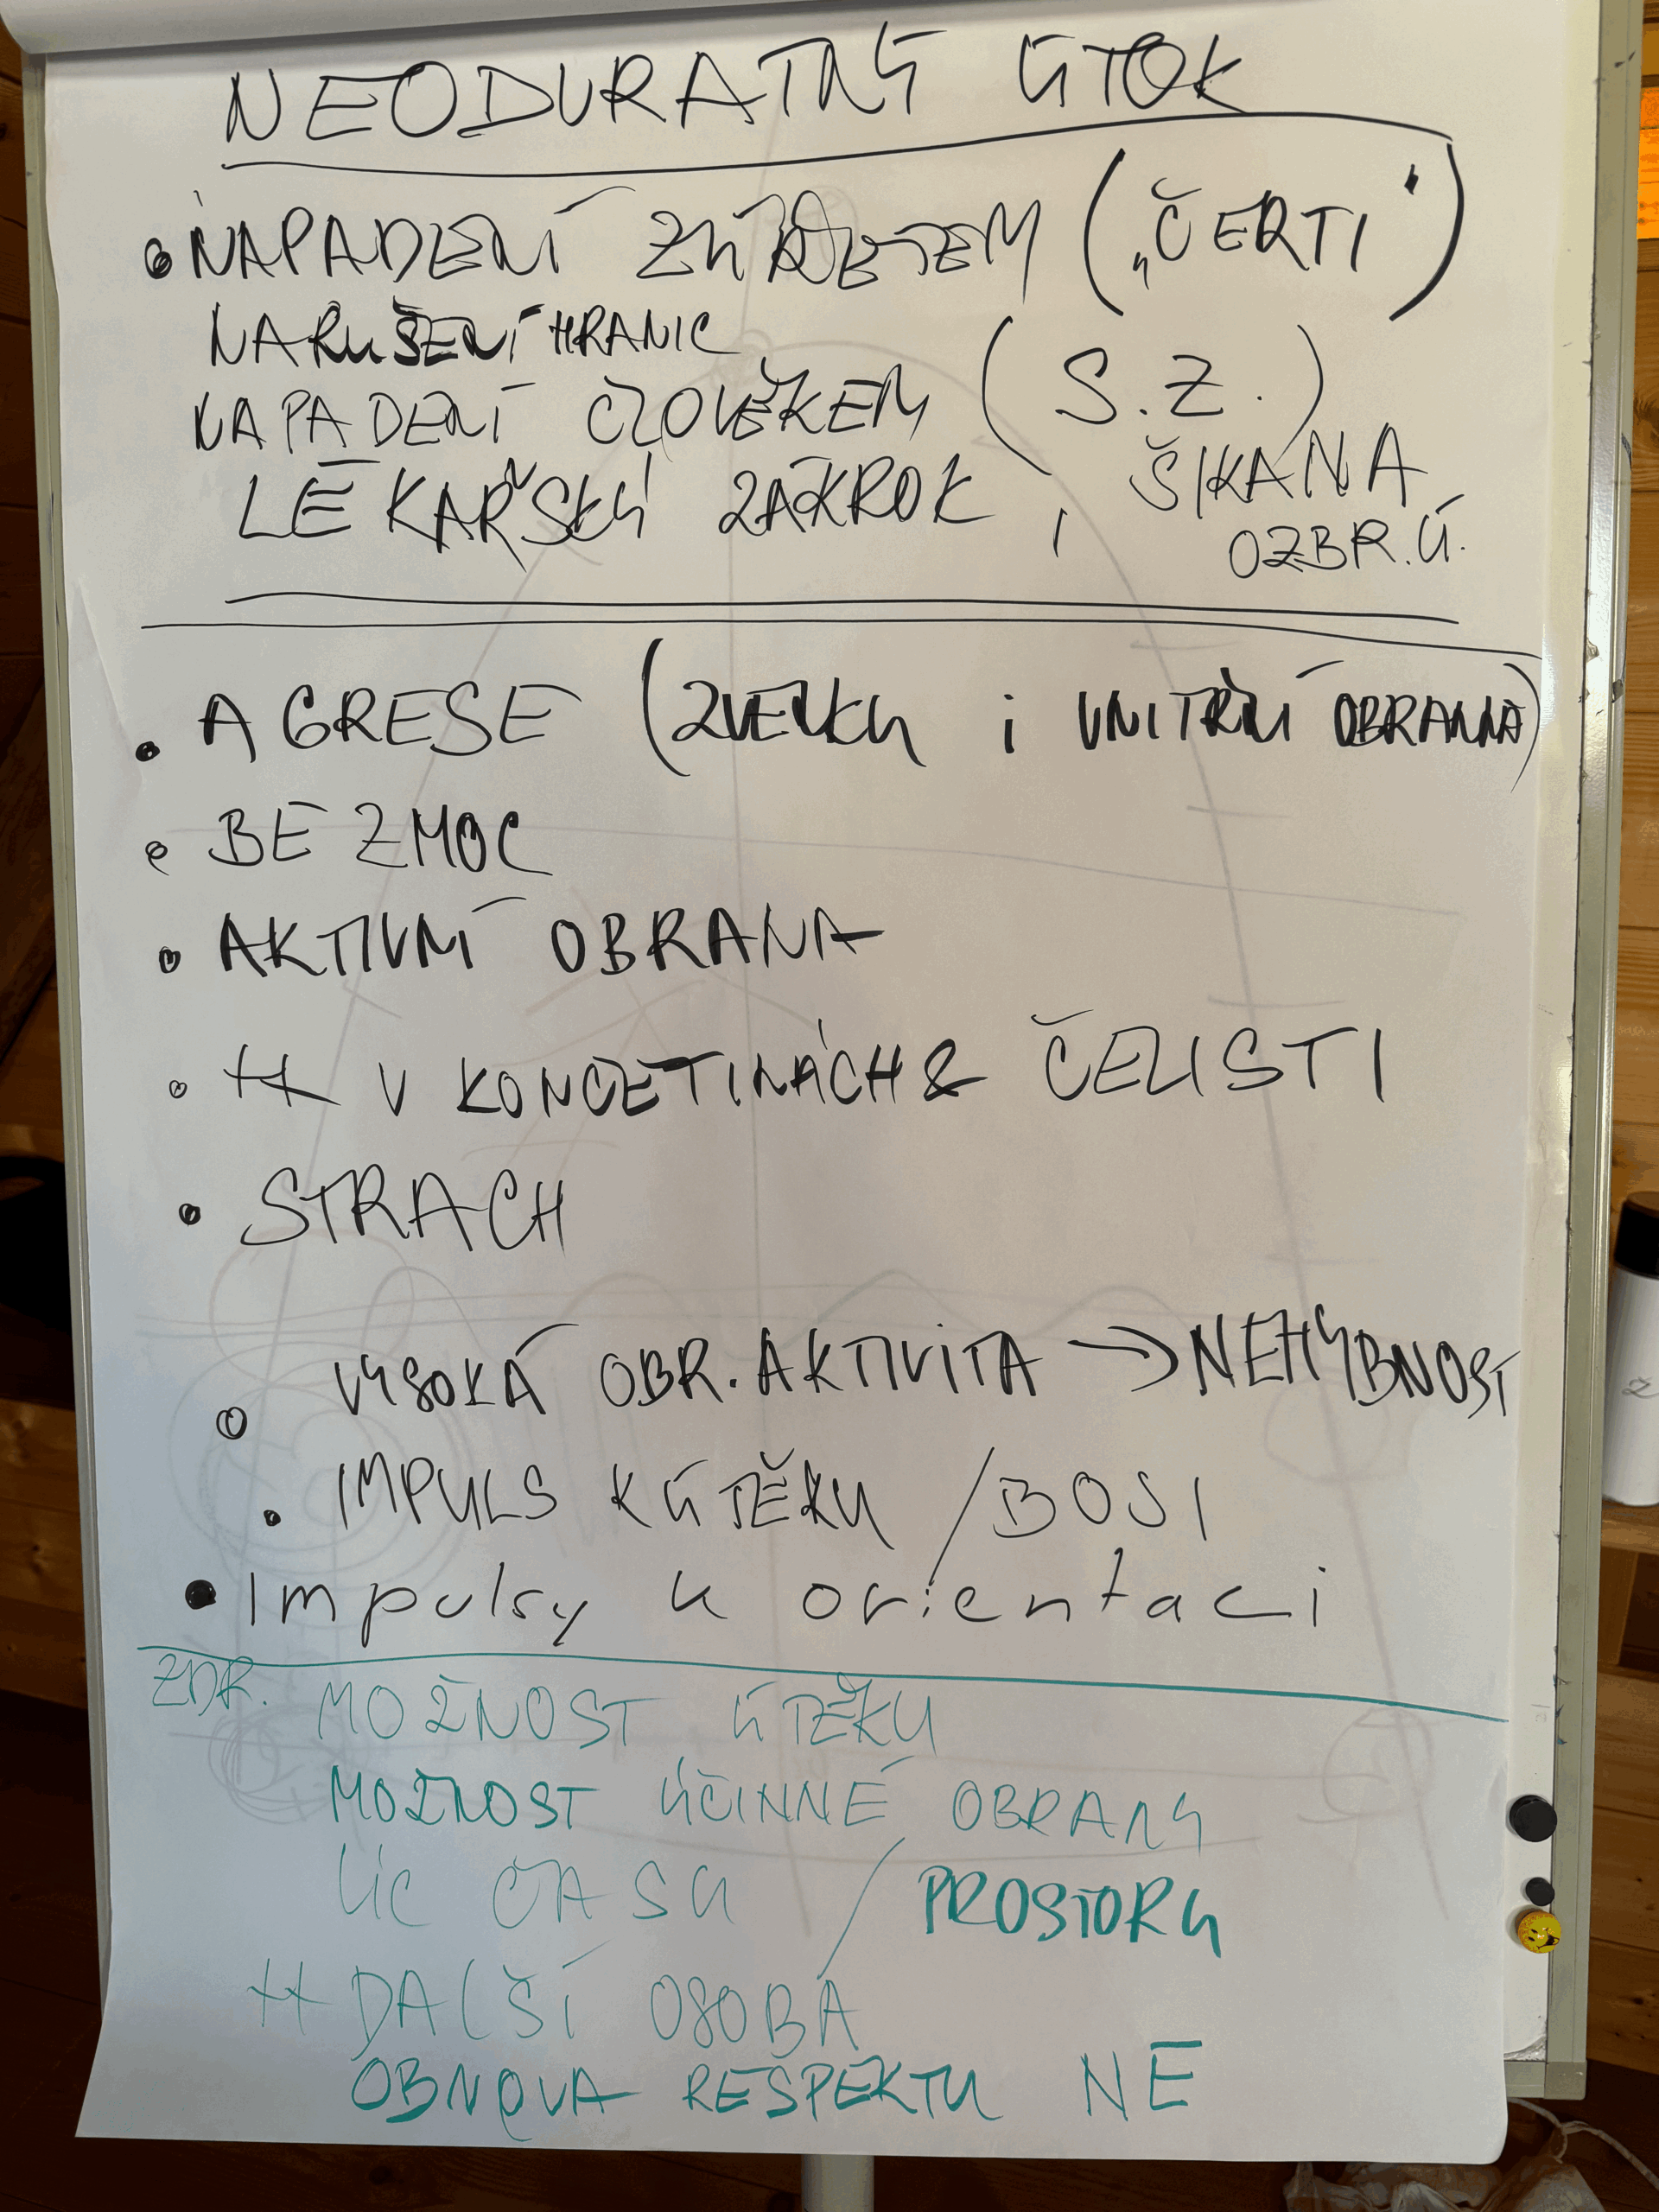 NEODVRATNÝ ÚTOK
• NAPADENÍ ZVÍŘETEM („ČERTI“)
NARUŠENÍ HRANIC
NAPADENÍ ČLOVĚKEM (S.Z.)
LÉKAŘSKÝ ZÁKROK, ŠIKANA
OZBR. Ú.
• AGRESE (ZVENKU i VNITŘNÍ OBRANNÁ)
• BEZMOC
• AKTIVNÍ OBRANA
• ++ V KONČETINÁCH & ČELISTI
• STRACH
• VYSOKÁ OBR. AKTIVITA → NEHYBNOST
• IMPULS K ÚTĚKU / BOJI
• Impulsy k orientaci
ZDR. MOŽNOST ÚTĚKU
MOŽNOST ÚČINNÉ OBRANY
VÍC ČASU / PROSTORU
++ DALŠÍ OSOBA
OBNOVA RESPEKTU NE